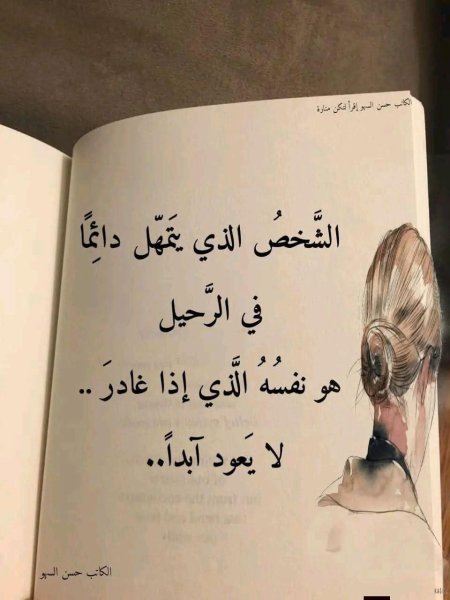 الكاتب حسن السهو إقرأ لتكن منارة
الشَّخصُ الذي يَتَمهّل دائِمًا
في الرَّحيل
هو نفسُهُ الَّذي إذا غادرَ ..
لا يَعود آبداً..
الكاتب حسن السهو